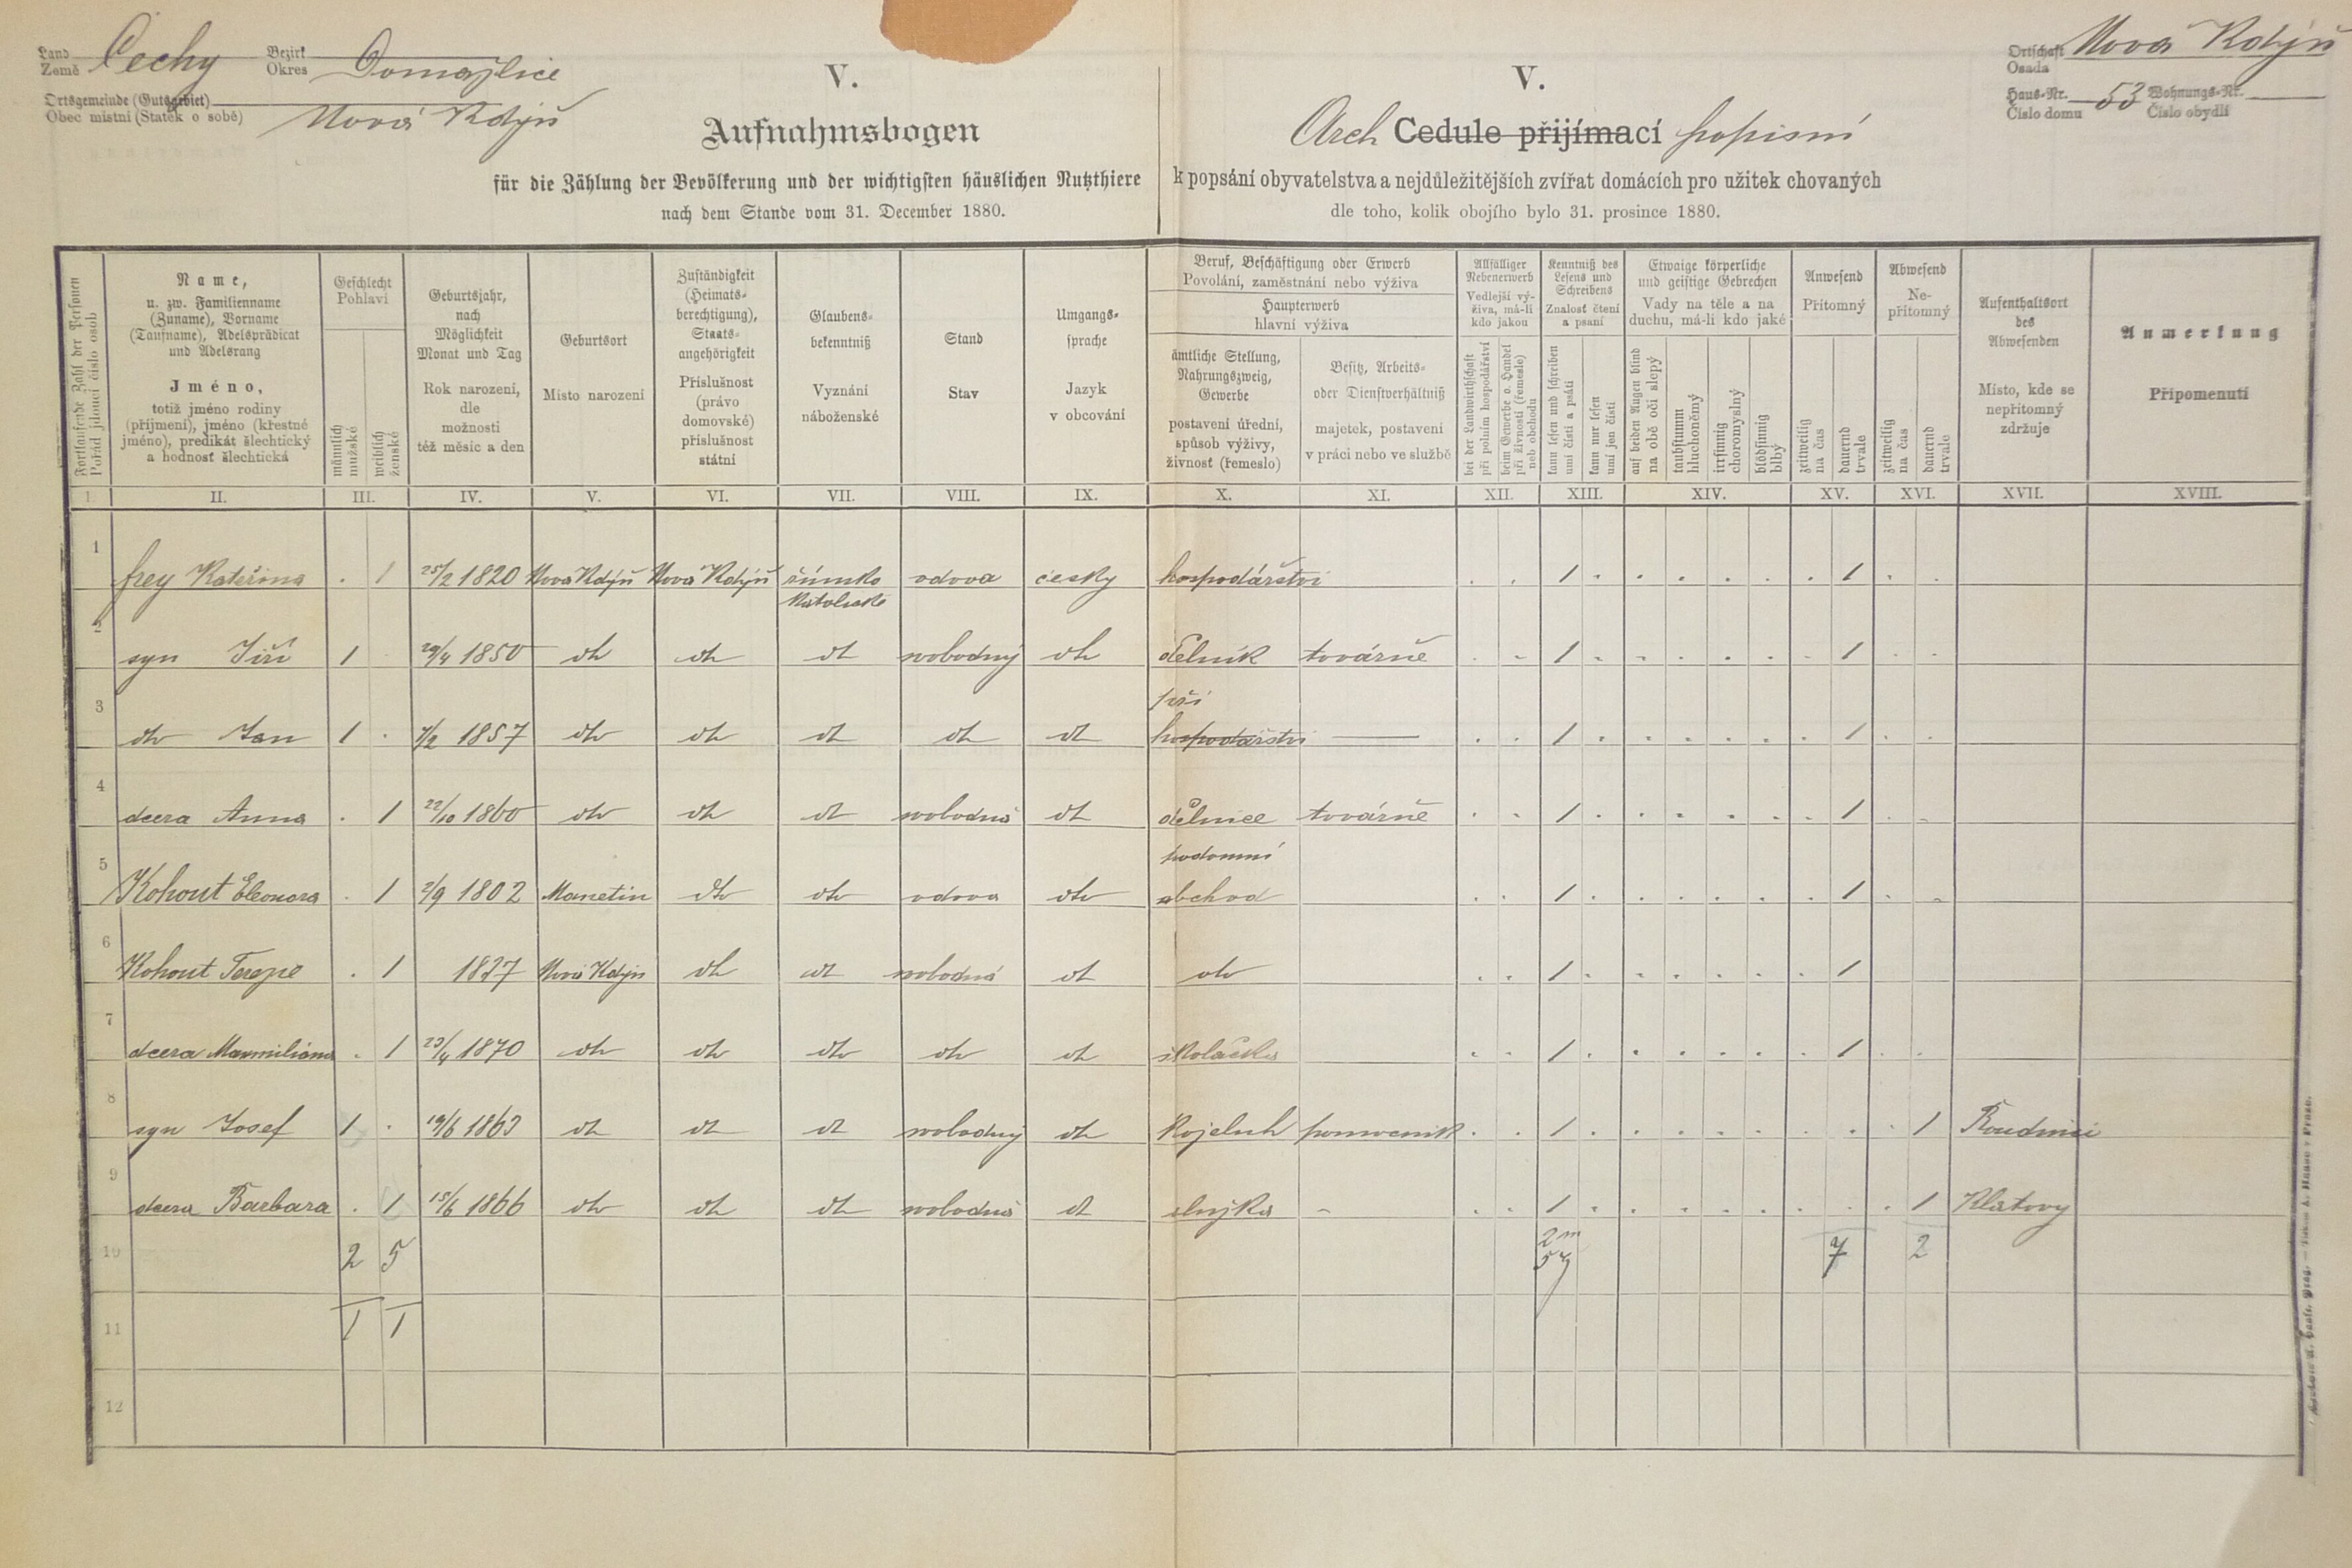 Land
Země Čechy
Bezirk
Okres Domažlice
Ortsgemeinde (Gutsgebiet)
Obec místní (Statek o sobě) Nová Kdýň
V.
Aufnahmsbogen
für die Zählung der Bevölkerung und der wichtigsten häuslichen Nutzthiere
nach dem Stande vom 31. December 1880.
V.
Arch Cedule přijímací popisní
k popsání obyvatelstva a nejdůležitějších zvířat domácích pro užitek chovaných
dle toho, kolik obojího bylo 31. prosince 1880.
Ortschaft
Osada Nová Kdýň
Haus-Nr.
Číslo domu 53
Wohnungs-Nr.
Číslo obydlí
Fortlaufende Zahl der Personen
Pořád jdoucí číslo osob
Name,
u. zw. Familienname
(Zuname), Vorname
(Taufname), Adelsprädicat
und Adelsrang
Jméno,
totiž jméno rodiny
(příjmení), jméno (křestné
jméno), predikát šlechtický
a hodnosť šlechtická
Geschlecht
Pohlaví
männlich
mužské
weiblich
ženské
Geburtsjahr,
nach
Möglichkeit
Monat und Tag
Rok narození,
dle
možnosti
též měsíc a den
Geburtsort
Místo narození
Zuständigkeit
(Heimats-
berechtigung),
Staats-
angehörigkeit
Příslušnost
(právo
domovské)
příslušnost
státní
Glaubens-
bekenntniß
Vyznání
náboženské
Stand
Stav
Umgangs-
sprache
Jazyk
v obcování
Beruf, Beschäftigung oder Erwerb
Povolání, zaměstnání nebo výživa
Haupterwerb
hlavní výživa
ämtliche Stellung,
Nahrungszweig,
Gewerbe
postavení úřední,
spůsob výživy,
živnost (řemeslo)
Besitz, Arbeits-
oder Dienstverhältniß
majetek, postavení
v práci nebo ve službě
Allfälliger
Nebenerwerb
Vedlejší vý-
živa, má-li
kdo jakou
bei der Landwirthschaft
při polním hospodářství
beim Gewerbe o. Handel
při živnosti (řemesle)
neb obchodu
Kenntniß des
Lesens und
Schreibens
Znalosť čtení
a psaní
kann lesen und schreiben
umí čísti a psáti
kann nur lesen
umí jen čísti
Etwaige körperliche
und geistige Gebrechen
Vady na těle a na
duchu, má-li kdo jaké
auf beiden Augen blind
na obě oči slepý
taubstumm
hluchoněmý
irrsinnig
choromyslný
blödsinnig
blbý
Anwesend
Přítomný
zeitweilig
na čas
dauernd
trvale
Abwesend
Ne-
přítomný
zeitweilig
na čas
dauernd
trvale
Aufenthaltsort
des
Abwesenden
Místo, kde se
nepřítomný
zdržuje
Anmerkung
Připomenutí
I. II. III. IV. V. VI. VII. VIII. IX. X. XI. XII. XIII. XIV. XV. XVI. XVII. XVIII.
1 frey Kateřina . 1 25/2 1820 Nová Kdýň Nová Kdýň římsko katolické vdova česky hospodářství . . 1 . . . . . . 1 . .
2 syn Jiří 1 29/4 1850 dt dt dt svobodný dt dělník továrně . . 1 . . . . . . 1 . .
3 dt Jan 1 . 7/2 1857 dt dt dt dt dt při hospodářství — . . 1 . . . . . . 1 . .
4 dcera Anna . 1 22/10 1860 dt dt dt svobodná dt dělnice továrně . . 1 . . . . . . 1 . .
5 Kohout Eleonora . 1 2/9 1802 Manetin dt dt vdova dt podomní obchod . . 1 . . . . . . 1 . .
6 Kohout Terezie . 1 1827 Nová Kdýň dt dt svobodná dt dt . . 1 . . . . . . 1
7 dcera Maxmiliána . 1 23/4 1870 dt dt dt dt dt školačka . . 1 . . . . . . 1 . .
8 syn Josef 1 . 19/6 1863 dt dt dt svobodný dt kojeluh pomocník . . 1 . . . . . . . . 1 Roudnici
9 dcera Barbara . 1 15/6 1866 dt dt dt svobodná dt služka - . . 1 . . . . . . . . 1 Klatovy
10 2 5 2 m 5 ž 7 2
11 1 1
12